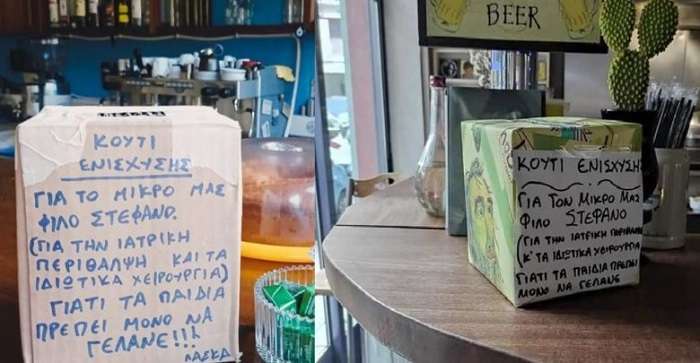 ΚΟΥΤΙ
ΕΝΙΣΧΥΣΗΣ
ΓΙΑ ΤΟ ΜΙΚΡΟ ΜΑΣ
ΦΙΛΟ ΣΤΕΦΑΝΟ.
(ΓΙΑ ΤΗΝ ΙΑΤΡΙΚΗ
ΠΕΡΙΘΑΛΨΗ ΚΑΙ ΤΑ
ΙΔΙΩΤΙΚΑ ΧΕΙΡΟΥΡΓΙΑ)
ΓΙΑΤΙ ΤΑ ΠΑΙΔΙΑ
ΠΡΕΠΕΙ ΜΟΝΟ ΝΑ
ΓΕΛΑΝΕ!!!
ΛΑΣΚΑ
BEER
ΚΟΥΤΙ ΕΝΙΣΧΥΣΗΣ
ΓΙΑ ΤΟΝ ΜΙΚΡΟ ΜΑΣ
ΦΙΛΟ ΣΤΕΦΑΝΟ
(ΓΙΑ ΤΗΝ ΙΑΤΡΙΚΗ
(Κ' ΤΑ ΙΔΙΩΤΙΚΑ ΧΕΙΡΟΥΡΓΙΑ
ΓΙΑΤΙ ΤΑ ΠΑΙΔΙΑ ΠΡΕΠΕΙ
ΜΟΝΟ ΝΑ ΓΕΛΑΝΕ